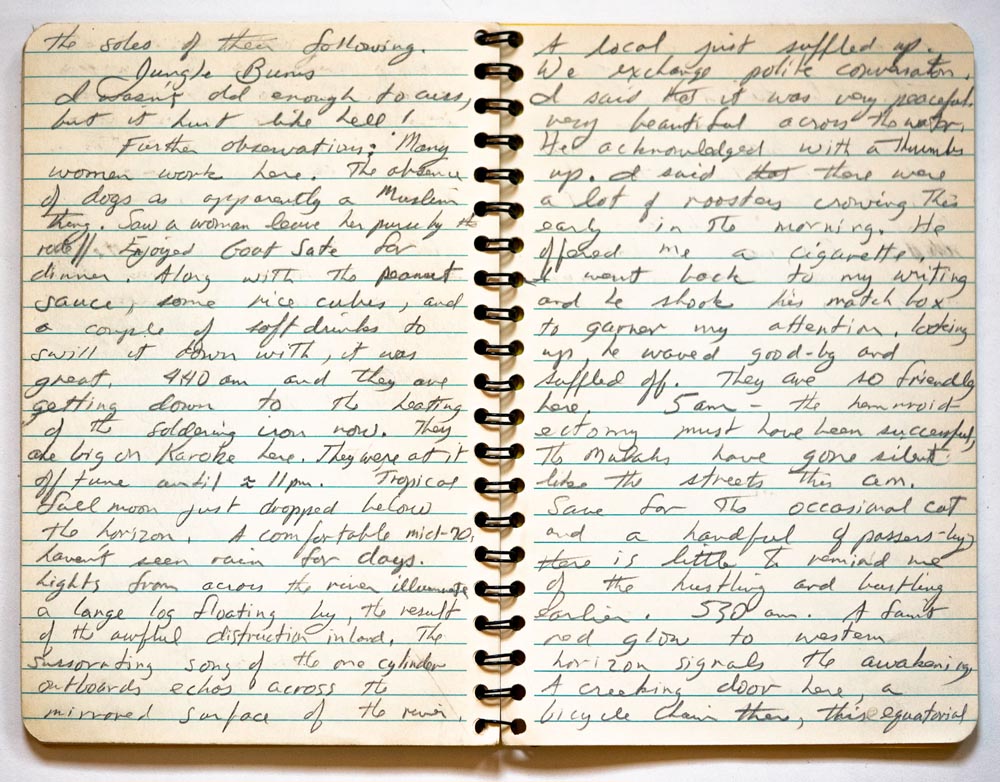 the soles of their following.
Jungle Bums
I wasn't old enough to cuss,
but it hurt like hell!
Further observations: Many
women work here. The absence
of dogs as apparently a Muslim
thing. Saw a woman leave her purse by the
Enjoyed Goat Sate for
dinner. Along with the peanut
sauce, some rice cubes, and
a couple of soft drinks to
swill it down with, it was
great. 440 am and they are
getting down to the heating
of the soldering iron now. They
are big on Karoke here. They were at it
off tune until ≈ 11pm. Tropical
full moon just dropped below
the horizon. A comfortable mid-70,
haven't seen rain for days.
Lights from across the river illuminate
a large log floating by, the result
of the awful distruction inland. The
sussorating song of the one cylinder
outboards echos across the
mirrored surface of the river.
A local just suffled up.
We exchange polite conversation.
I said that it was very peaceful,
very beautiful across the water.
He acknowledged with a thumbs
up. I said that there were
a lot of roosters crowing this
early in the morning. He
offered me a cigarette.
I went back to my writing
and he shook his match box
to garner my attention. Looking
up, he waved good-by and
suffled off. They are so friendly
here. 5am - the hemmroid-
ectomy must have been successful,
the mullahs have gone silent
like the streets this am.
Save for the occasional cat
and a handful of passers-by,
there is little to remind me
of the hustling and bustling
earlier. 530 am. A faint
red glow to western
horizon signals the awakening.
A creeking door here, a
bicycle chain there, this equatorial